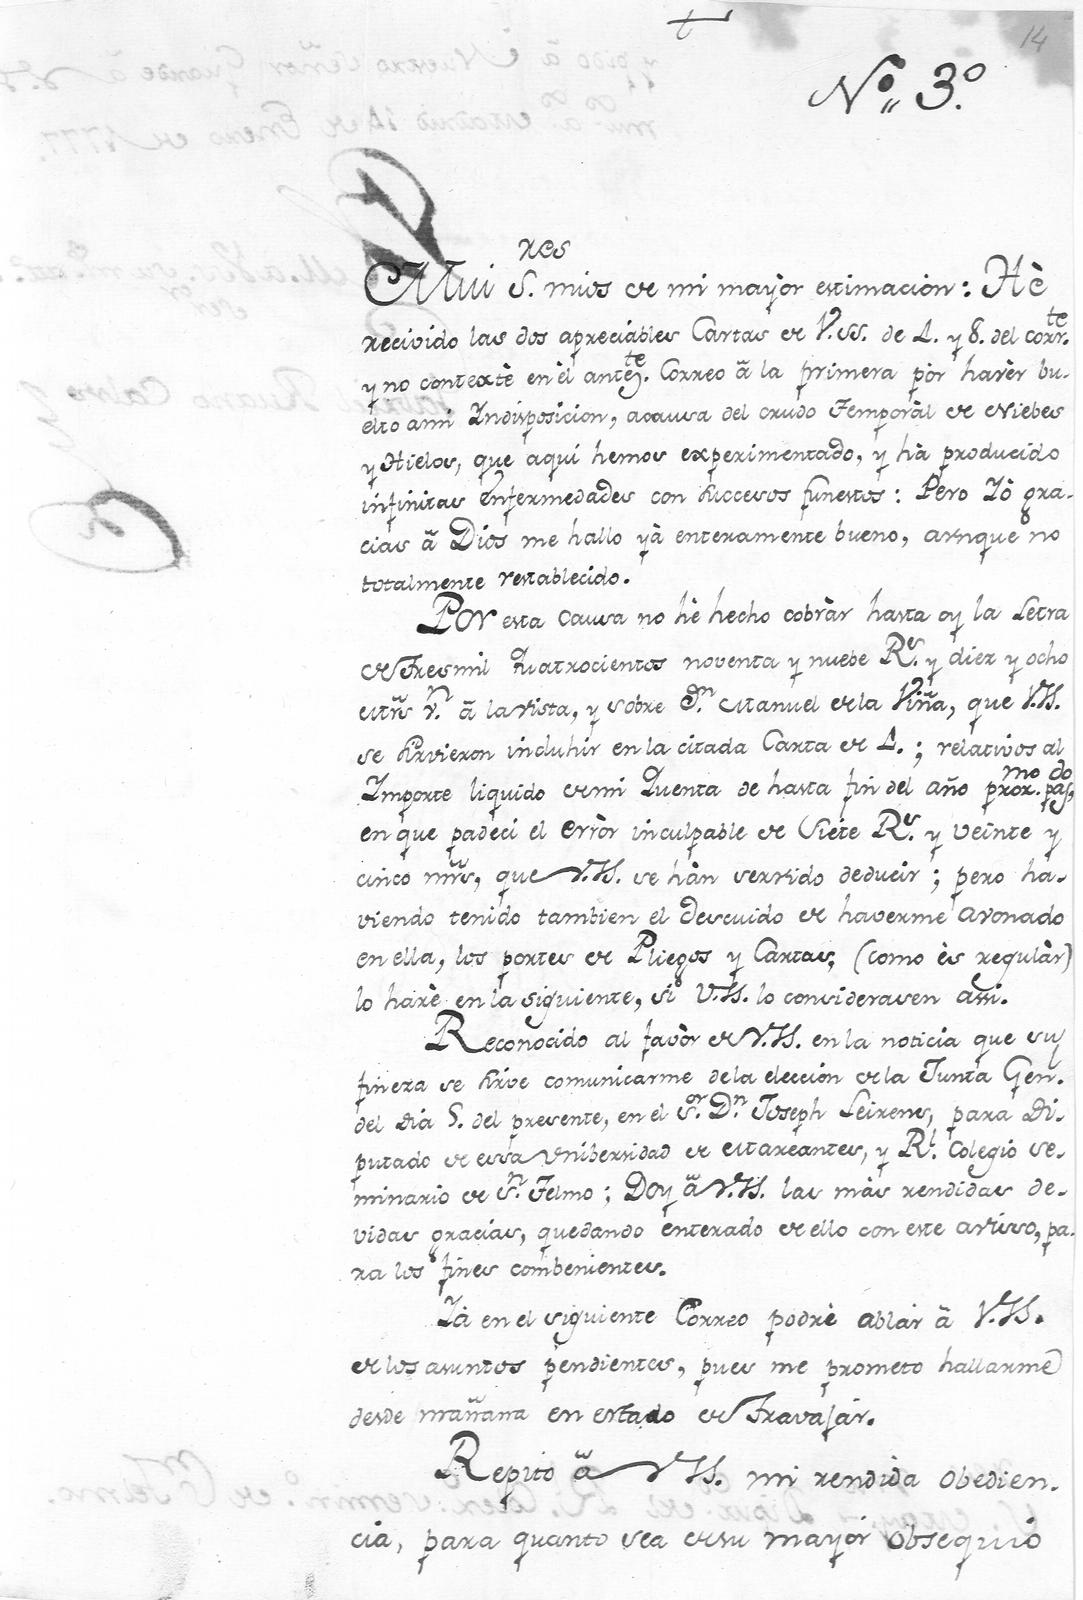 14
Nº 3º.
Mui S.res mios de mi mayòr estimacion: Hè
recivido las dos apreciables Cartas de V.SS. de 4. y 8. del corr.te
y no contextè en èl anteᵹ.te Correo â la primera pòr havèr bu-
elto ami Indisposicion, acausa del crudo Temporàl de Niebes
y Hielos, que aqui hemos experimentado, y hà producido
infinitas Enfermedades con succesos funestos: Pero Yò gra-
cias â Dios me hallo yà enteramente bueno, aunque no
totalmente restablecido.
Por esta causa no hè hecho cobràr hasta oy la Letra
de Tresmil quatrocientos noventa y nuebe R.s y diez y ocho
mrs v.n â la vista, y sobre D.n Manuel de la Viña, que V.SS.
se sirvieron incluhir en la citada Carta de 4.; relativos al
Importe liquido de mi Quenta de hasta fin del año prox.mo pas.do,
en que padeci el erròr inculpable de Siete R.s y veinte y
cinco mrs, que V.SS. se hàn servido deducir; pero ha-
viendo tenido tambien el descuido de haverme avonado
en ella, los portes de Pliegos y Cartas, (como ès regulàr)
lo harè en la siguiente, si V.SS. lo considerasen assi.
Reconocido al favòr de V.SS. en la noticia que su
fineza se sirve comunicarme de la elección de la Junta Gen.
del dia 5. del presente, en el S.or D.n Joseph Leirens, para Di-
putado de essa Unibersidad de Mareantes, y R.l Colegio Se-
minario de S.n Telmo; Doy â V.SS. las màs rendidas de-
vidas gracias, quedando enterado de ello con este aviso, pa-
ra los fines combenientes.
Yà en el siguiente Correo podrè ablàr â V.SS.
de los asuntos pendientes, pues me prometo hallarme
desde mañana en estado de Travajàr.
Repito â V.SS. mi rendida obedien-
cia, para quanto sea de su mayòr obsequio